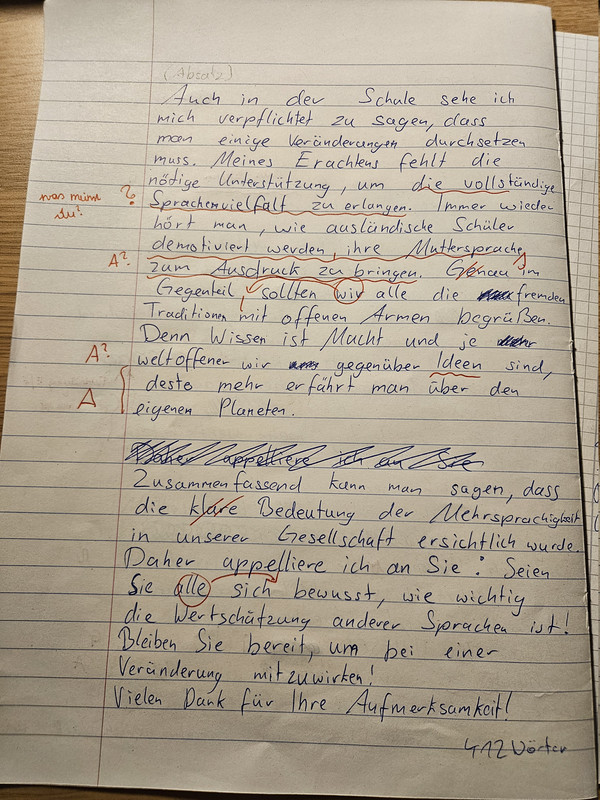 (Absatz)
Auch in der Schule sehe ich
mich verpflichtet zu sagen, dass
man einige Veränderungen durchsetzen
muss. Meines Erachtens fehlt die
nötige Unterstützung, um die vollständige
was meinst du? ? Sprachenvielfalt zu erlangen. Immer wieder
hört man, wie ausländische Schüler
demotiviert werden, ihre Muttersprache
A? zum Ausdruck zu bringen. Genau im
Gegenteil sollten wir alle die fremden
Traditionen mit offenen Armen begrüßen.
Denn Wissen ist Macht und je
A? weltoffener wir gegenüber Ideen sind,
A desto mehr erfährt man über den
eigenen Planeten.
Daher appelliere ich an Sie
Zusammenfassend kann man sagen, dass
die klare Bedeutung der Mehrsprachigkeit
in unserer Gesellschaft ersichtlich wurde.
Daher appelliere ich an Sie: Seien
Sie alle sich bewusst, wie wichtig
die Wertschätzung anderer Sprachen ist!
Bleiben Sie bereit, um bei einer
Veränderung mitzuwirken!
Vielen Dank für Ihre Aufmerksamkeit!
412 Wörter